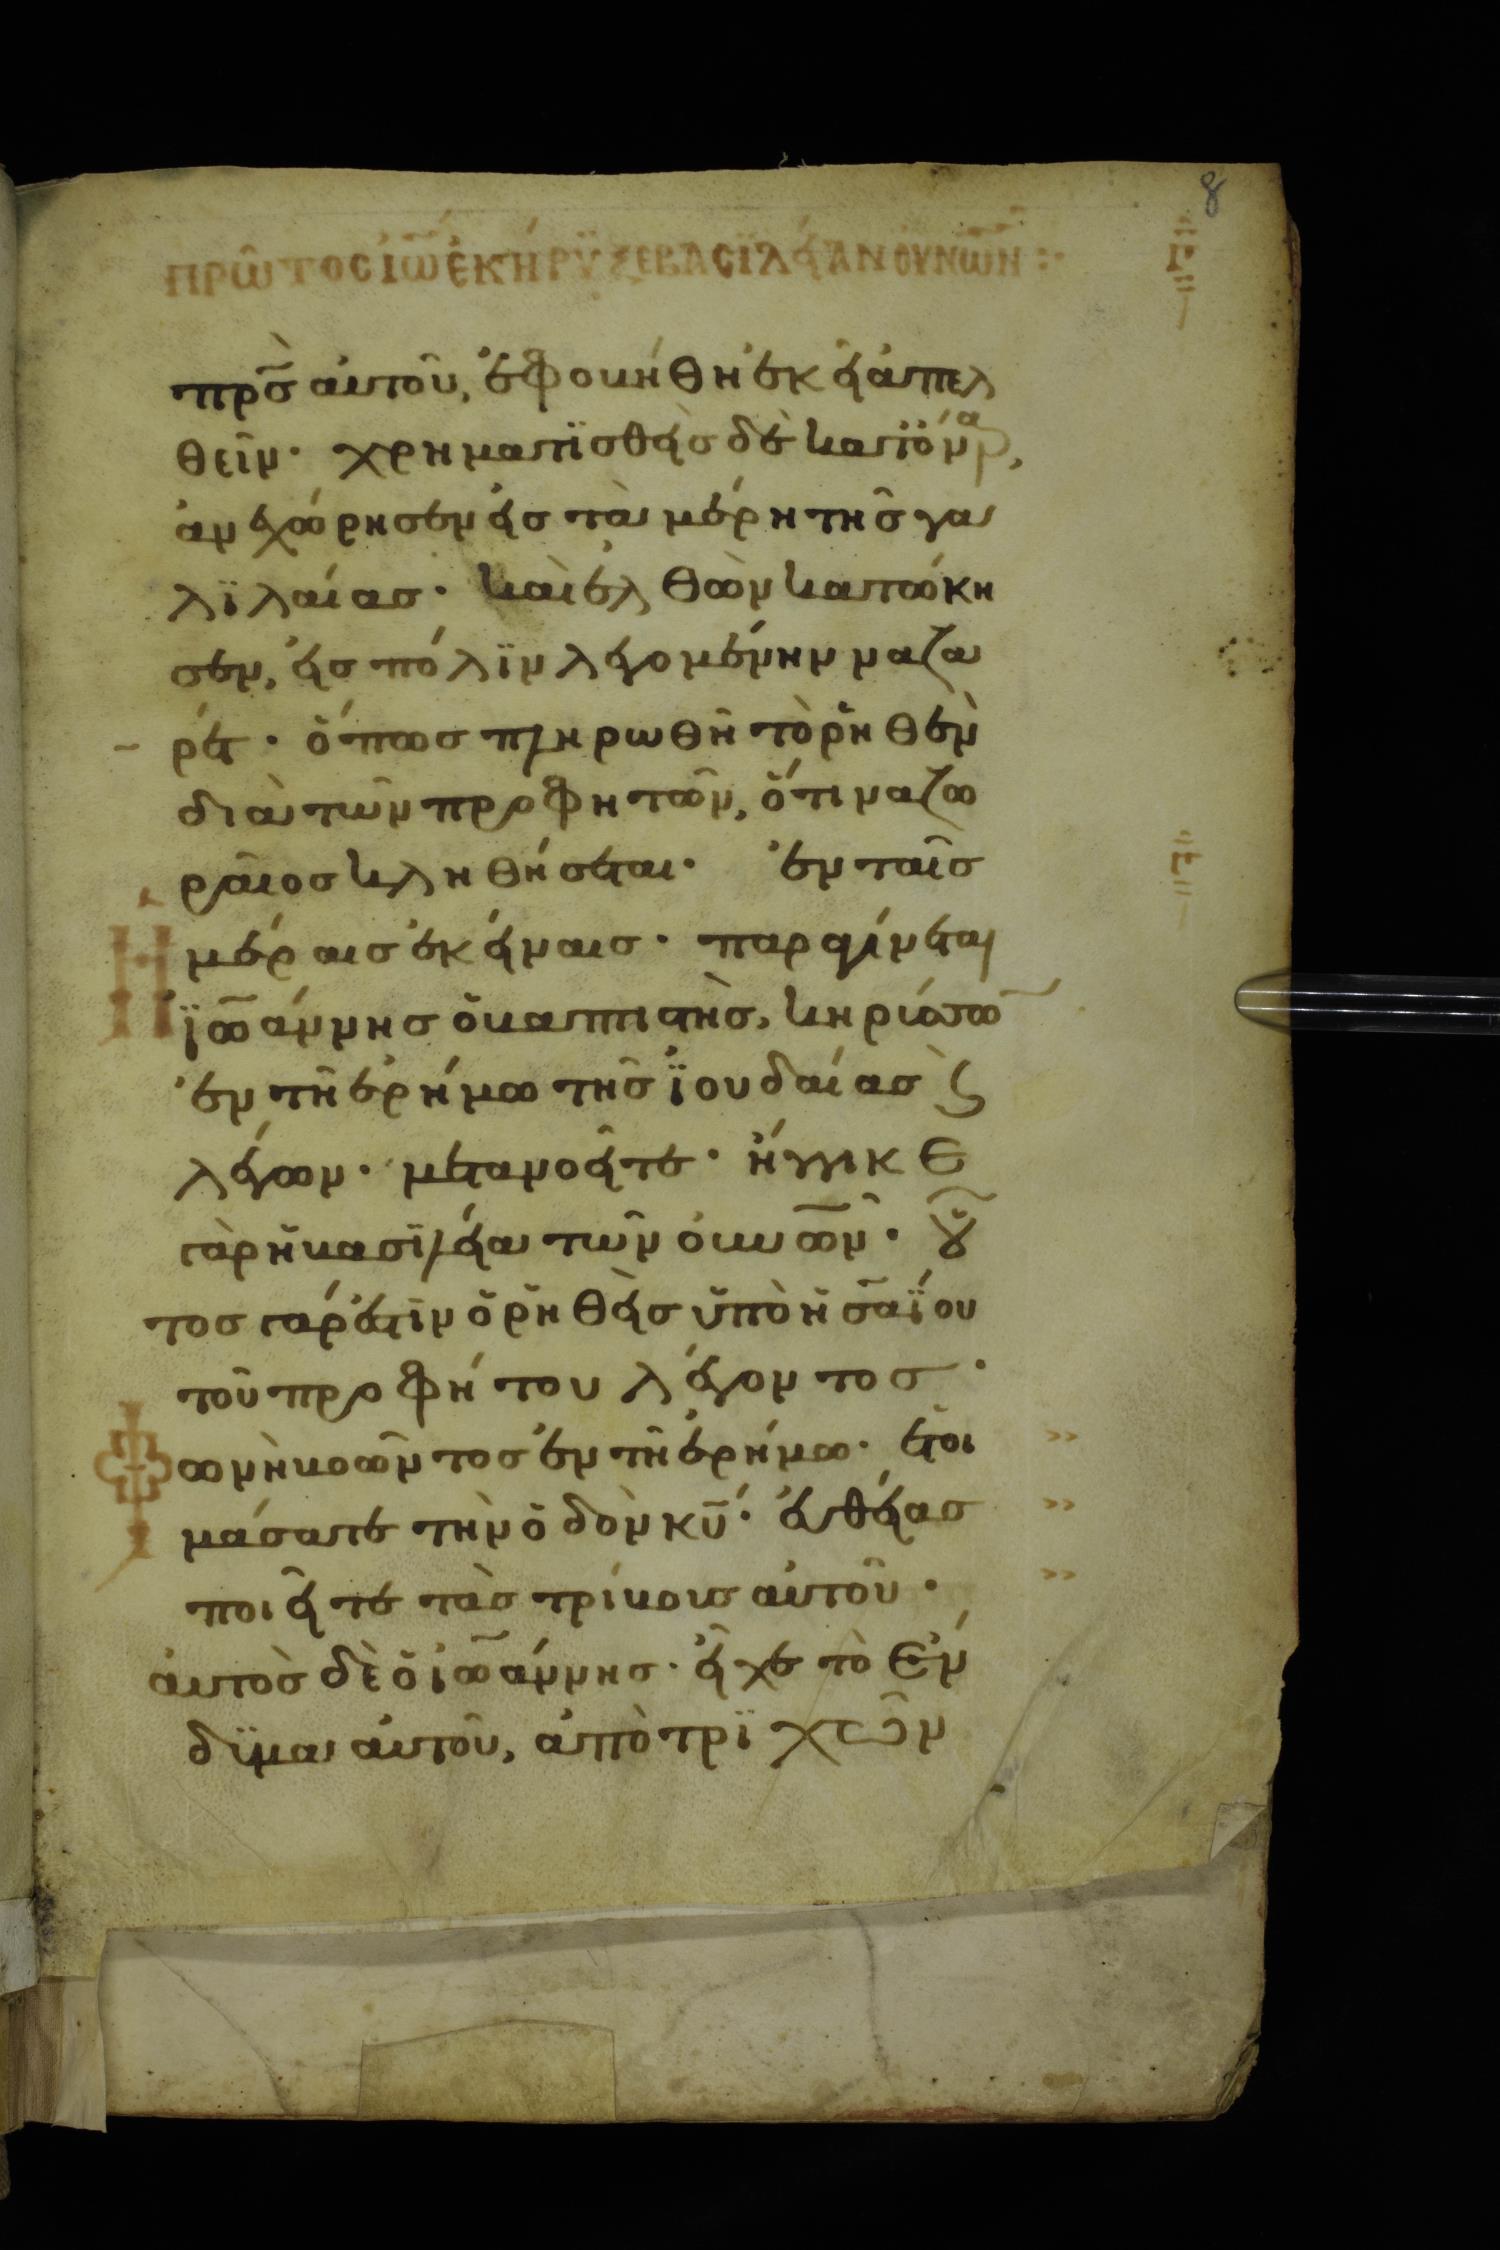 8
ΠΡΩ͂ΤΟΣ ἸΩ̅ ἘΚΉΡΥΞΕ ΒΑΣΙΛΕΊΑΝ ΟΥ̓ΝΩ̅Ν :·
πρ̅σ αὐτοῦ, ἐφοβήθη ἐκεῖ ἀπελ
θεῖν · χρηματϊσθεὶς δὲ κατ' ὄναρ,
ἀνεχώρησεν εἰς τὰ μέρη τῆς γα
λϊλαίας · καὶ ἐλθὼν κατώκη
σεν, εἰς πόλϊν λεγομένην ναζα
ρέτ · ὅπως πληρωθῆ τὸ ῥηθὲν
διὰ τῶν προφητῶν, ὅτι ναζω
ραῖος κληθήσεται · ἐν ταῖς
Ἡμέραις ἐκείναις · παραγίνεται
ϊω̅άννης ὁ βαπτιστὴς, κηρύσσω̅
ἐν τῆ ἐρήμω τῆς ϊουδαίας ϗ̀
λέγων · μετανοεῖτε · ἤγγικε
γὰρ ἡ βασϊλεία τῶν οὐνω̅ν · οὗ
τος γάρ ἐστϊν ὁ ῥηθεὶς ὑπὸ ἡσαΐου
τοῦ προφήτου λέγοντος ·
Φωνὴ βοῶντος ἐν τῆ ἐρήμω · ἑτοι »
μάσατε τὴν ὁδὸν κ̅υ · εὐθείας »
ποιεῖτε τὰς τρίβους αὐτοῦ · »
αὐτὸς δὲ ὁ ἰω̅άννης · εἶχε τὸ ἔν
δϋμα αὐτοῦ, ἀπὸ τρϊχῶν